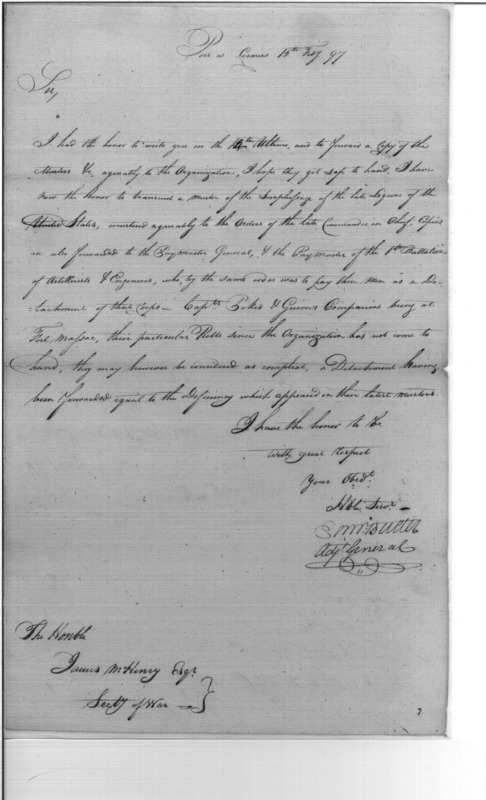 Sir,
I had the honor to write you on the 12th Ultimo, and to forward a Copy of the
Musters &c. agreeably to the Organization, I hope they got safe to hand, I have
now the Honor to transmit a muster of the Surplussage of the late Legion of the
United States, mustered agreeably to the Orders of the late Commander in Chief, Copies
are also forwarded to the Paymaster General, & the Paymaster of the 1st Battalion
of Artillerists & Engineers, who, by the same order was to pay these Men as a De-
tachment of that Corps — Capts. & Companies being at
Fort Massac, their particular Rolls since the Organization has not come to
hand, they may however be considered as compleat, a Detachment having
been forwarded equal to the Deficiency which appeared in their latest musters
I have the honor to be
with great respect
Your Obedt.
Hble Servt. —
Adjt General
The Honble
James McHenry Esqr.
Secty of War